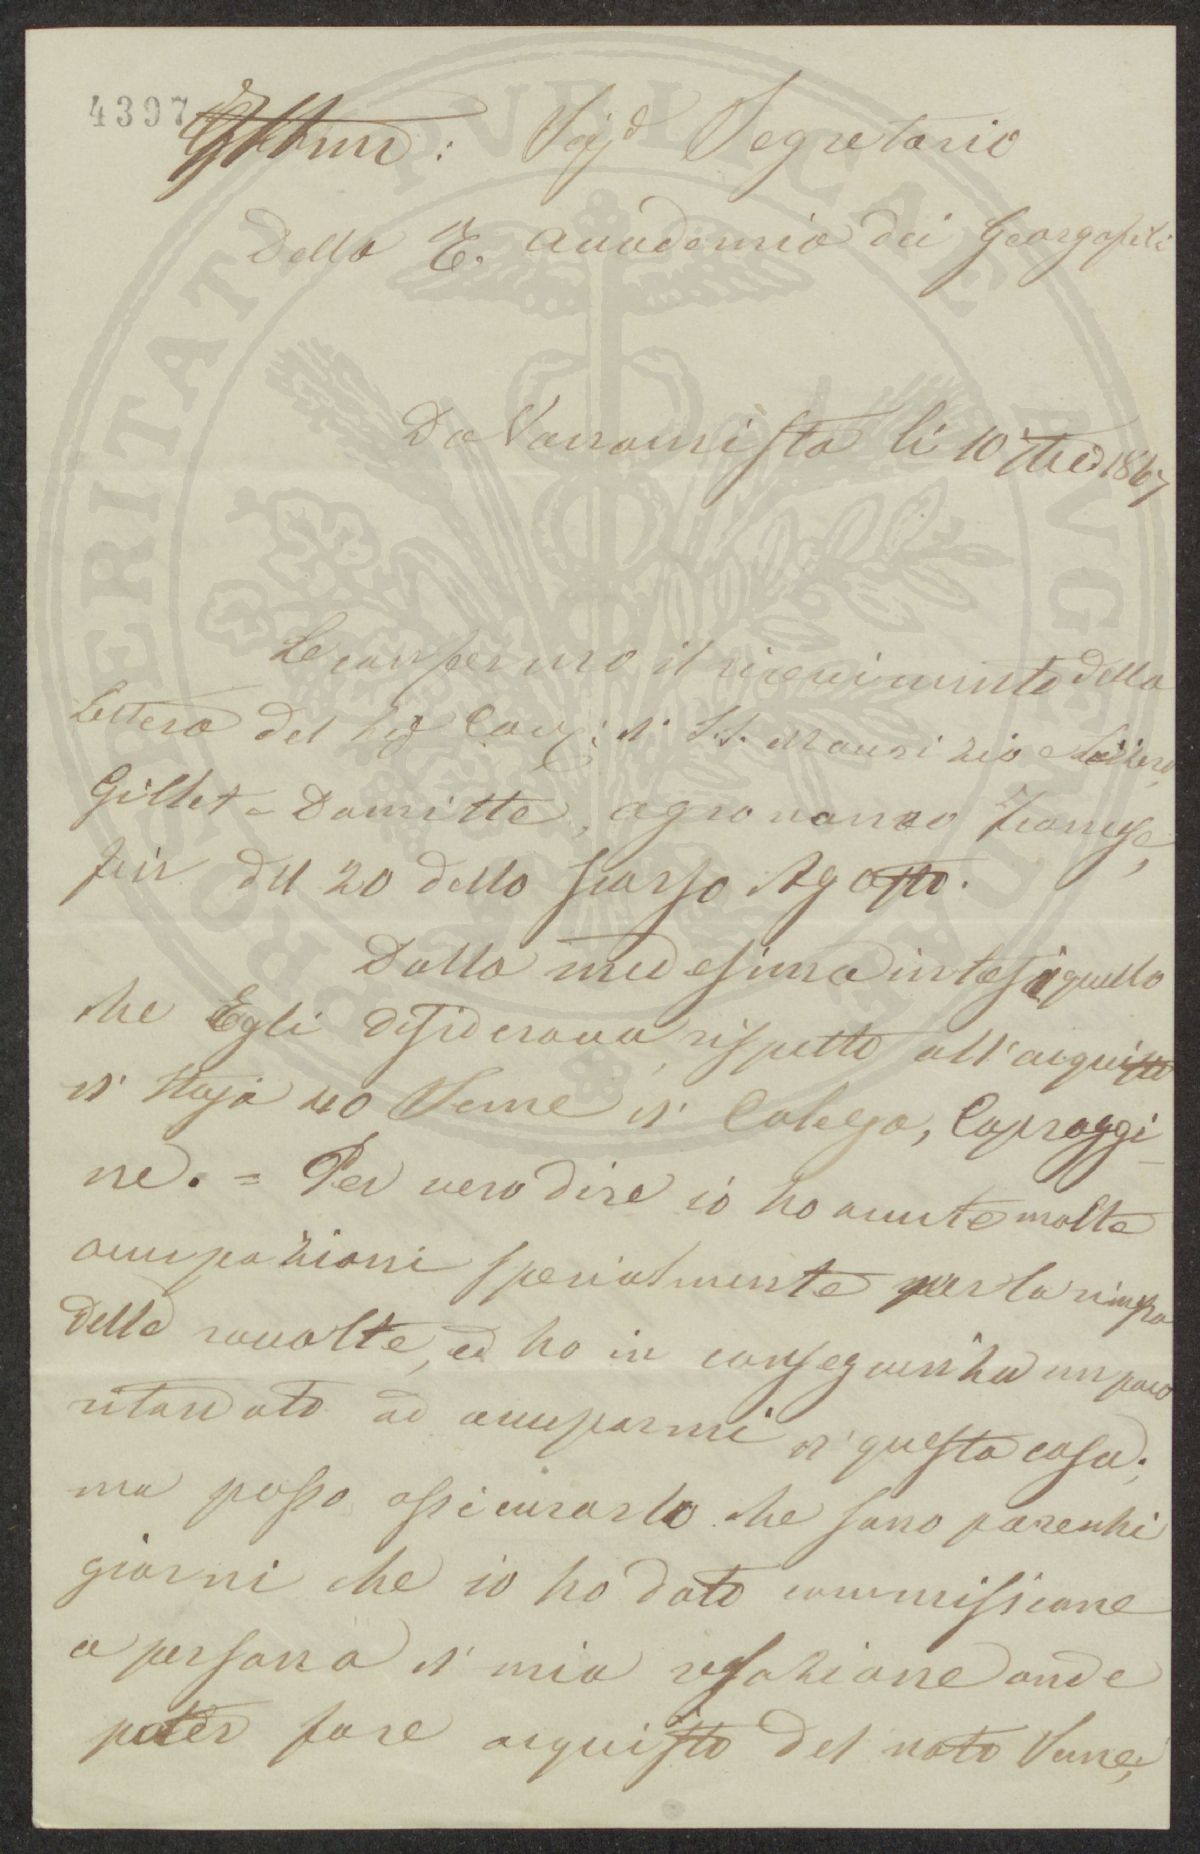 4397
Illmo: Sigr Segretario
Della R. Accademia dei Georgofili
Da Varramista li 10 7bre 1867
Le confermo il ricevimento della
Lettera del Sig Cav: di S.S. Maurizio e Lazzero,
Gillet-Damitte, agronomo Francese,
fin del 20 dello scorso Agosto.
Dalla medesima intesi quello
che Egli desiderava rispetto all'acquisto
di Staja 40 Seme di Galega, Capraggi-
ne. = Per vero dire io ho avute molte
occupazioni specialmente per la
delle raccolte, ed ho in conseguenza un poco
ritardato ad occuparmi di questa cosa;
ma posso assicurarlo che sono parecchi
giorni che io ho dato commissione
a persona di mia relazione onde
poter fare acquisto del noto Seme;
PROSPERITATI PVBLICAE AVGENDAE